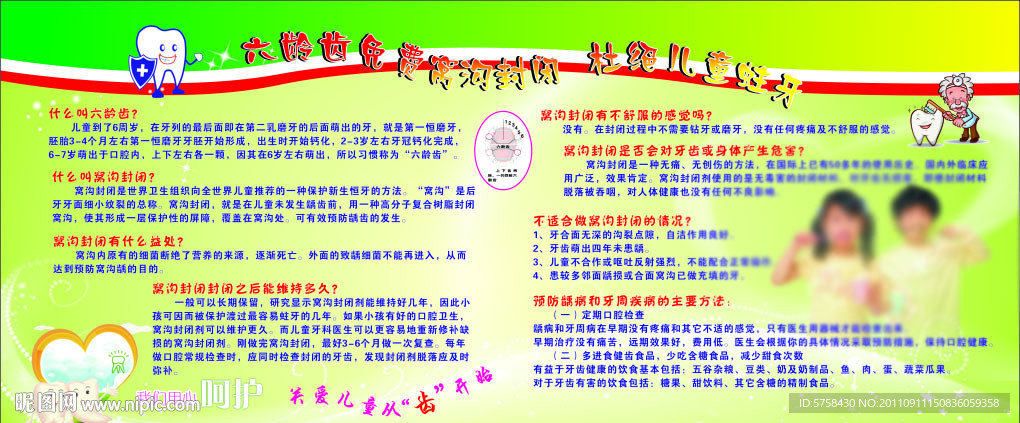 六龄齿免费窝沟封闭 杜绝儿童蛀牙
什么叫六龄齿？
儿童到了6周岁，在牙列的最后面即在第二乳磨牙的后面萌出的牙，就是第一恒磨牙，
胚胎3-4个月左右第一恒磨牙牙胚开始形成，出生时开始钙化，2-3岁左右牙冠钙化完成，
6-7岁萌出于口腔内，上下左右各一颗，因其在6岁左右萌出，所以习惯称为“六龄齿”。
什么叫窝沟封闭？
窝沟封闭是世界卫生组织向全世界儿童推荐的一种保护新生恒牙的方法。“窝沟”是后
牙牙面细小纹裂的总称。窝沟封闭，就是在儿童未发生龋齿前，用一种高分子复合树脂封闭
窝沟，使其形成一层保护性的屏障，覆盖在窝沟处。可有效预防龋齿的发生。
窝沟封闭有什么益处？
窝沟内原有的细菌断绝了营养的来源，逐渐死亡。外面的致龋细菌不能再进入，从而
达到预防窝沟龋的目的。
窝沟封闭封闭之后能维持多久？
一般可以长期保留，研究显示窝沟封闭剂能维持好几年，因此小
孩可因而被保护渡过最容易蛀牙的几年。如果小孩有好的口腔卫生，
窝沟封闭剂可以维护更久。而儿童牙科医生可以更容易地重新修补缺
损的窝沟封闭剂。刚做完窝沟封闭，最好3-6个月做一次复查。每年
做口腔常规检查时，应同时检查封闭的牙齿，发现封闭剂脱落应及时
弥补。
我们用心 呵护
关爱儿童从“齿”开始
六龄齿
窝沟封闭有不舒服的感觉吗？
没有。在封闭过程中不需要钻牙或磨牙，没有任何疼痛及不舒服的感觉。
窝沟封闭是否会对牙齿或身体产生危害？
窝沟封闭是一种无痛、无创伤的方法，在国际上已有50多年的使用历史，国内外临床应
用广泛，效果肯定。窝沟封闭剂使用的是无毒害的封闭材料，对牙齿无损害，即使封闭材料
脱落被吞咽，对人体健康也没有任何不良影响。
不适合做窝沟封闭的情况？
1、牙合面无深的沟裂点隙，自洁作用良好。
2、牙齿萌出四年未患龋。
3、儿童不合作或呕吐反射强烈，不能配合正常操作
4、患较多邻面龋损或合面窝沟已做充填的牙。
预防龋病和牙周疾病的主要方法：
（一）定期口腔检查
龋病和牙周病在早期没有疼痛和其它不适的感觉，只有医生用器械才能检查出来，
早期治疗没有痛苦，远期效果好，费用低。医生会根据你的具体情况采取预防措施，保持口腔健康。
（二）多进食健齿食品，少吃含糖食品，减少甜食次数
有益于牙齿健康的饮食基本包括：五谷杂粮、豆类、奶及奶制品、鱼、肉、蛋、蔬菜瓜果。
对于牙齿有害的饮食包括：糖果、甜饮料、其它含糖的精制食品。
昵图网 www.nipic.com
ID:5758430 NO:20110911150836059358